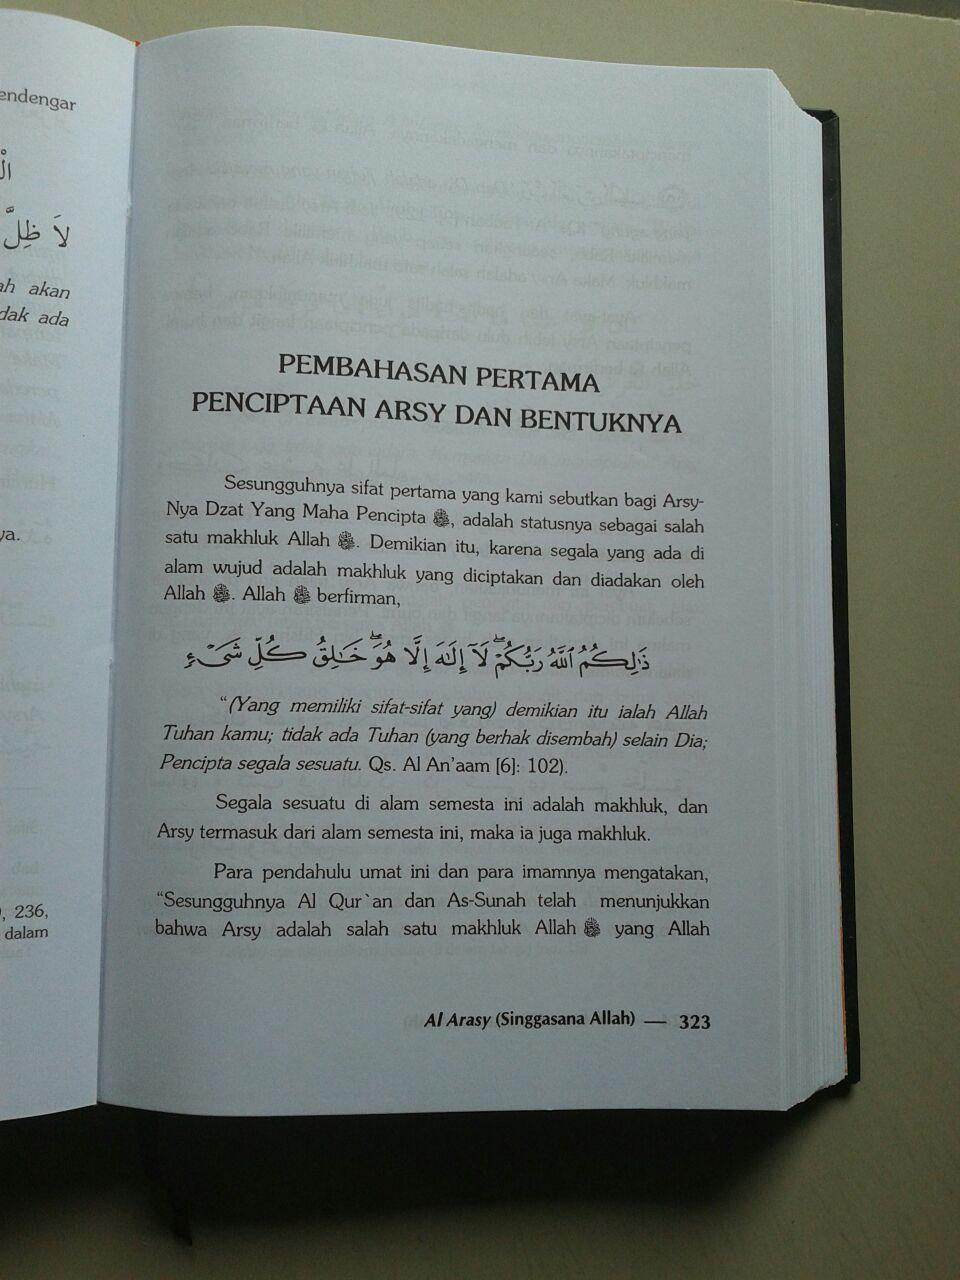 endengar
لاَ ظِلَّ
ah akan
dak ada
ya.
236,
dalam
PEMBAHASAN PERTAMA
PENCIPTAAN ARSY DAN BENTUKNYA
Sesungguhnya sifat pertama yang kami sebutkan bagi Arsy-
Nya Dzat Yang Maha Pencipta ﷻ, adalah statusnya sebagai salah
satu makhluk Allah ﷻ. Demikian itu, karena segala yang ada di
alam wujud adalah makhluk yang diciptakan dan diadakan oleh
Allah ﷻ. Allah ﷻ berfirman,
ذَٰلِكُمُ ٱللَّهُ رَبُّكُمْ ۖ لَآ إِلَٰهَ إِلَّا هُوَ ۖ خَٰلِقُ كُلِّ شَىْءٍ
“(Yang memiliki sifat-sifat yang) demikian itu ialah Allah
Tuhan kamu; tidak ada Tuhan (yang berhak disembah) selain Dia;
Pencipta segala sesuatu. Qs. Al An'aam [6]: 102).
Segala sesuatu di alam semesta ini adalah makhluk, dan
Arsy termasuk dari alam semesta ini, maka ia juga makhluk.
Para pendahulu umat ini dan para imamnya mengatakan,
“Sesungguhnya Al Qur`an dan As-Sunah telah menunjukkan
bahwa Arsy adalah salah satu makhluk Allah ﷻ yang Allah
Al Arasy (Singgasana Allah) — 323